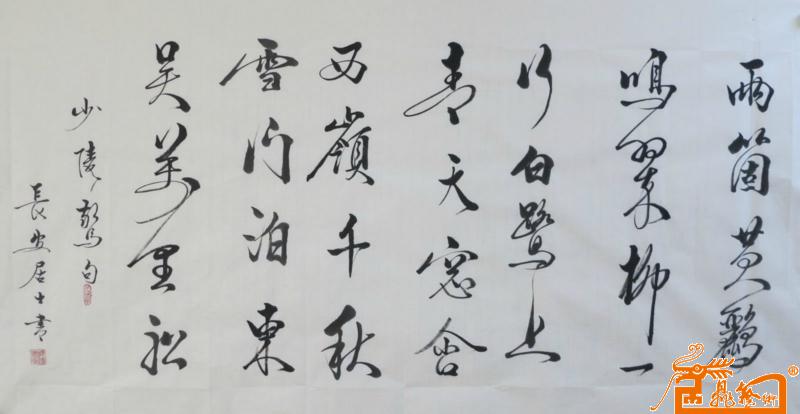 兩箇黃鸝
鳴翠柳一
行白鷺上
青天窓含
西嶺千秋
雪門泊東
吳萬里船
少陵句
長安居士書